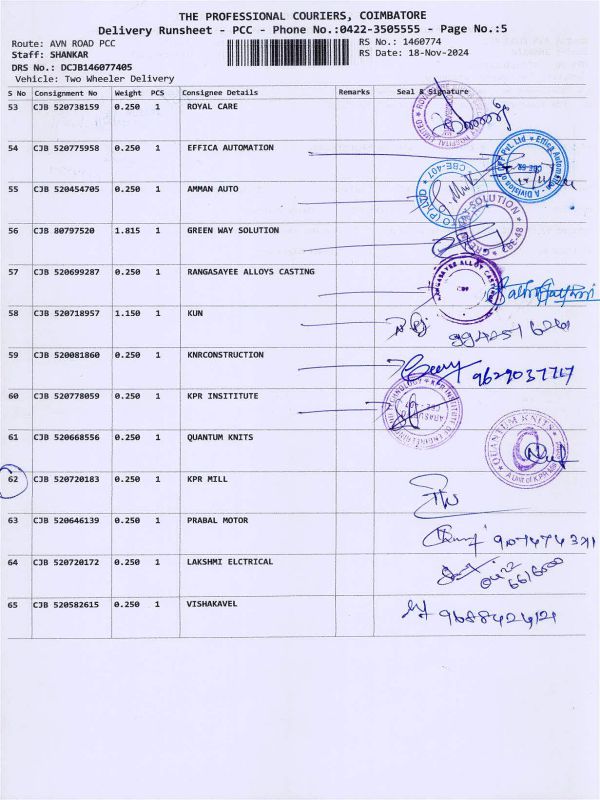 THE PROFESSIONAL COURIERS, COIMBATORE
Delivery Runsheet - PCC - Phone No.:0422-3505555 - Page No.:5
Route: AVN ROAD PCC RS No.: 1460774
Staff: SHANKAR RS Date: 18-Nov-2024
DRS No.: DCJB146077405
Vehicle: Two Wheeler Delivery
S No Consignment No Weight PCS Consignee Details Remarks Seal & Signature
53 CJB 520738159 0.250 1 ROYAL CARE
54 CJB 520775958 0.250 1 EFFICA AUTOMATION
55 CJB 520454705 0.250 1 AMMAN AUTO
CBE-407
56 CJB 80797520 1.815 1 GREEN WAY SOLUTION
CBE-48
57 CJB 520699287 0.250 1 RANGASAYEE ALLOYS CASTING
58 CJB 520718957 1.150 1 KUN
59 CJB 520081860 0.250 1 KNRCONSTRUCTION
9629037717
60 CJB 520778059 0.250 1 KPR INSITITUTE
KPR INSTITUTE OF ENGINEERING AND TECHNOLOGY
61 CJB 520668556 0.250 1 QUANTUM KNITS
QUANTUM KNITS
62 CJB 520720183 0.250 1 KPR MILL
63 CJB 520646139 0.250 1 PRABAL MOTOR
64 CJB 520720172 0.250 1 LAKSHMI ELCTRICAL
65 CJB 520582615 0.250 1 VISHAKAVEL